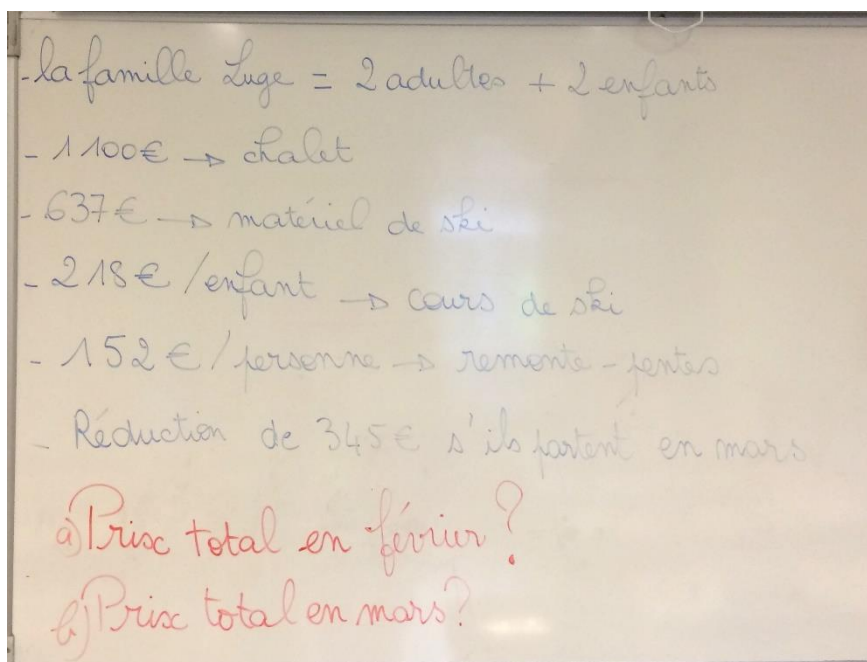 - la famille Luge = 2 adultes + 2 enfants
- 1 100€ → chalet
- 637€ → matériel de ski
- 218€ / enfant → cours de ski
- 152€ / personne → remonte-pentes
- Réduction de 345€ s'ils partent en mars
a) Prix total en février ?
b) Prix total en mars ?